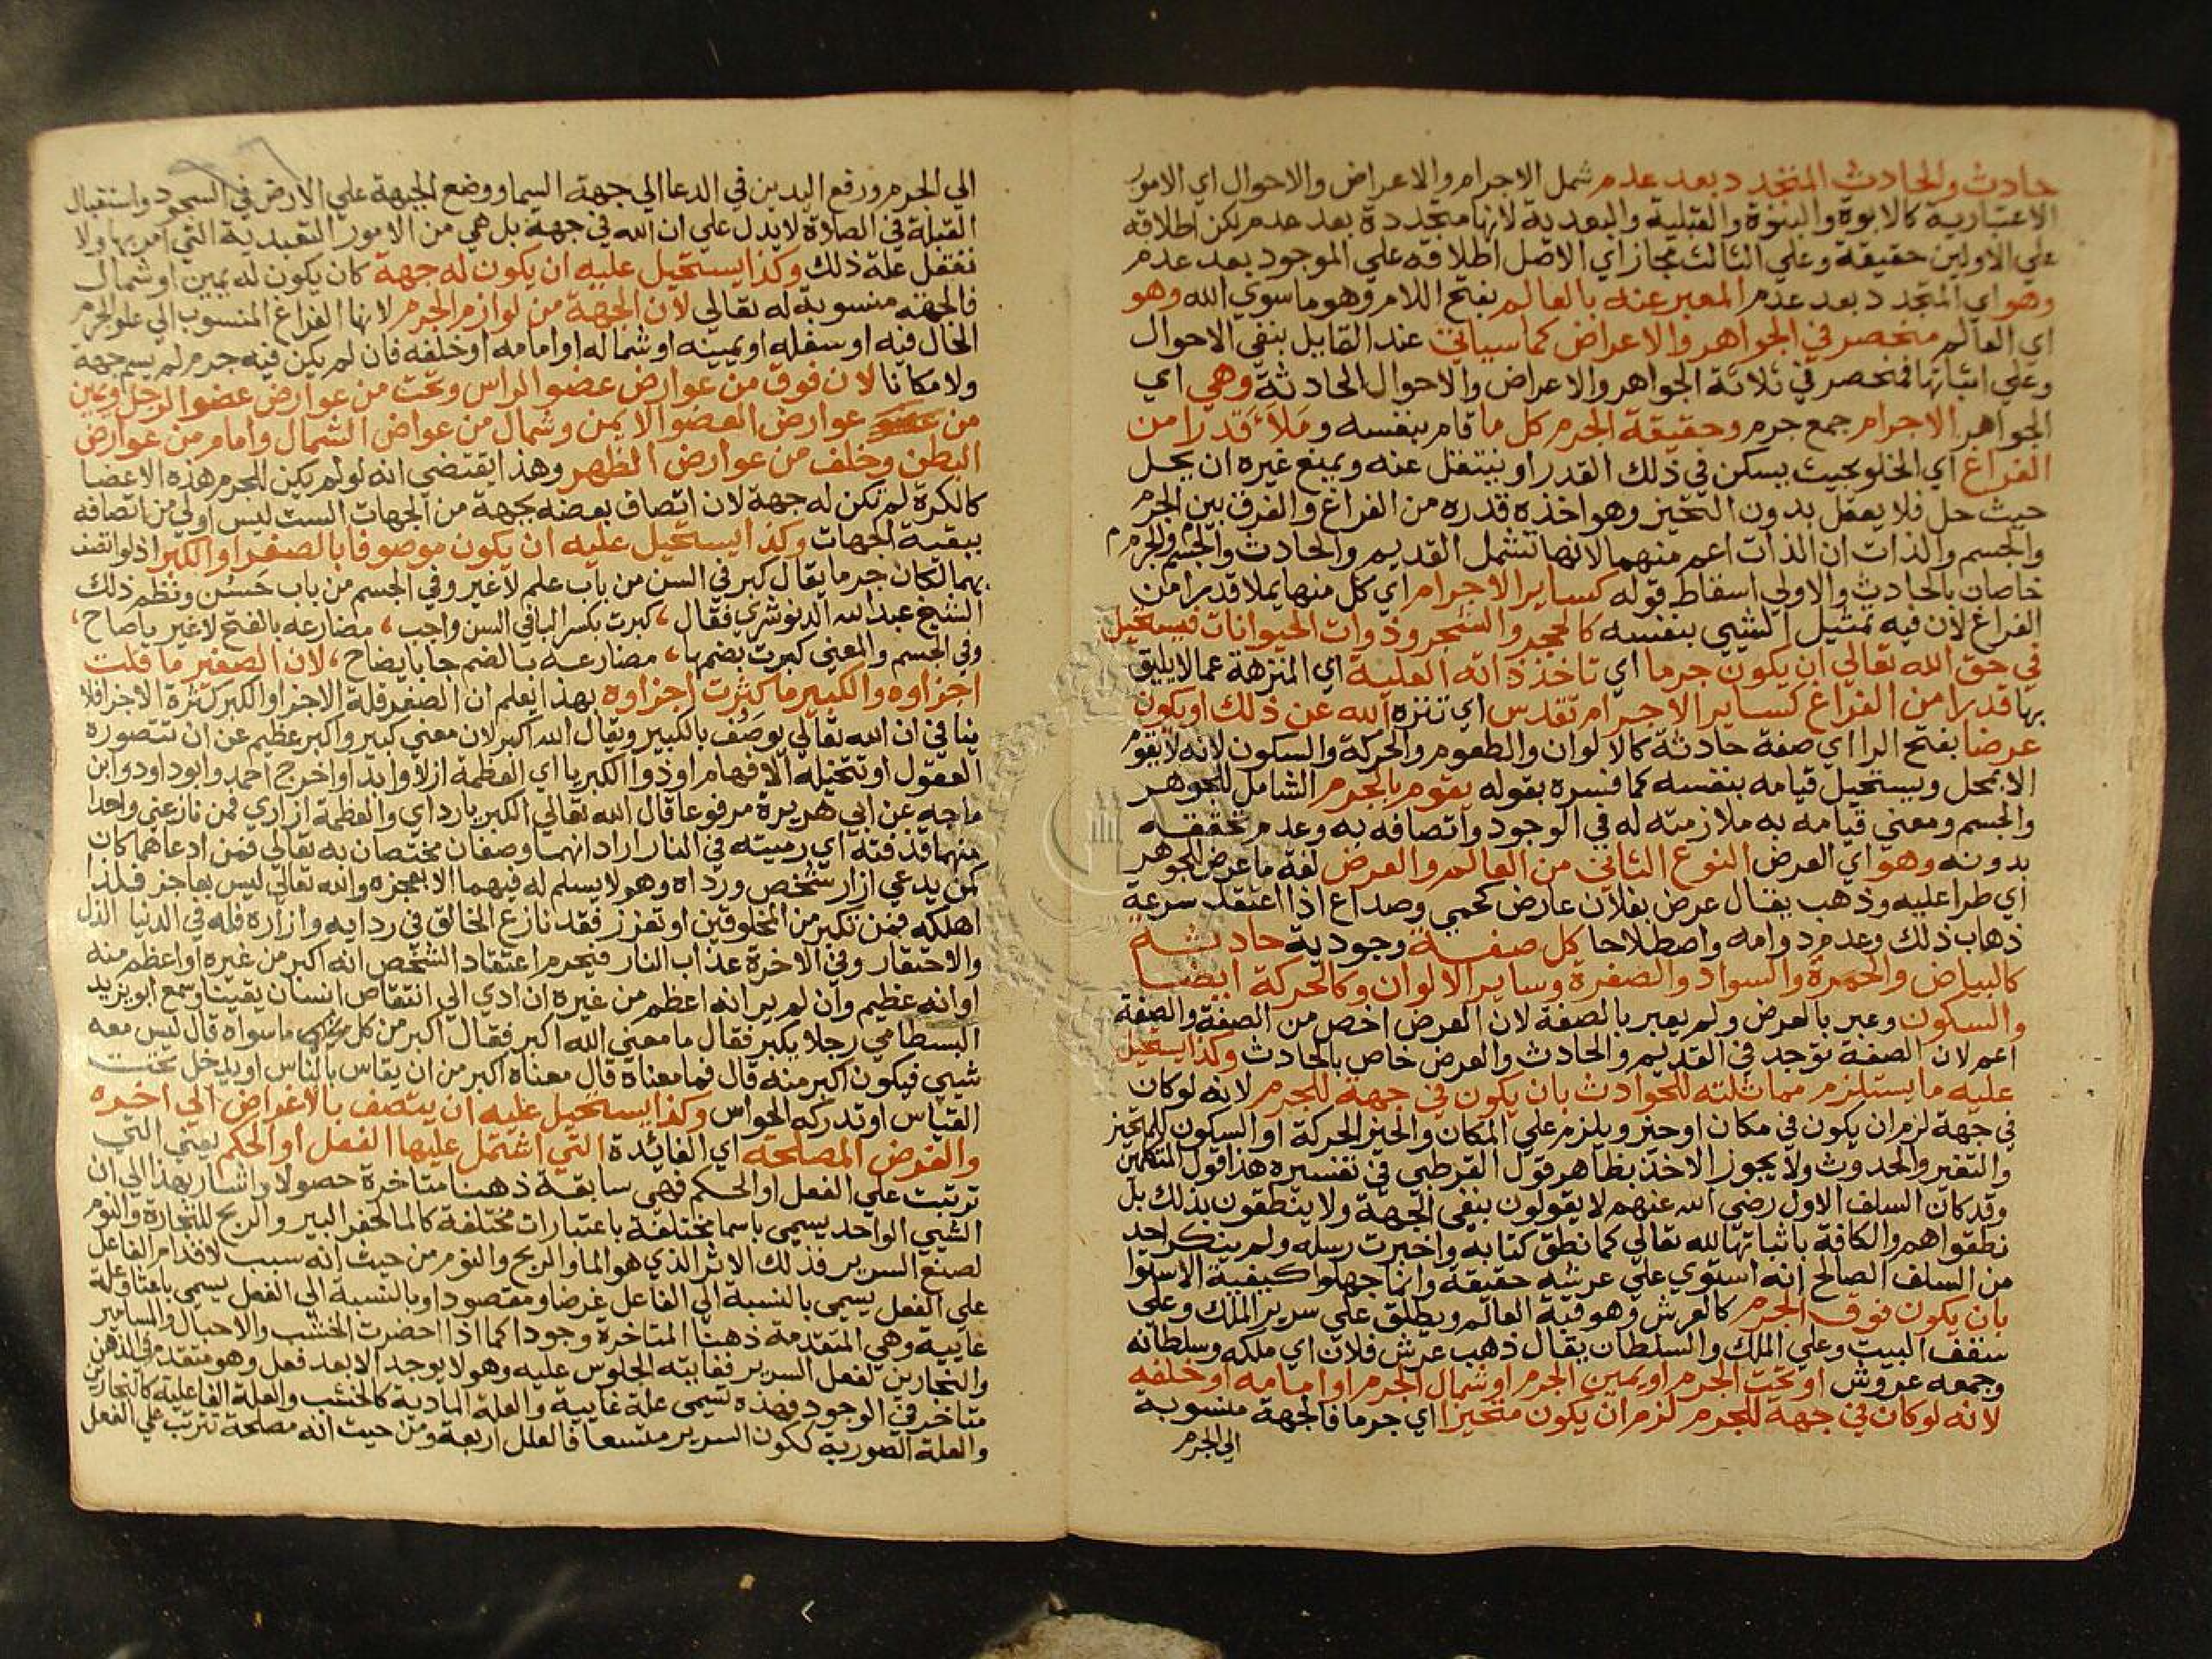 حادث والحادث المتجدد بعد عدم شمل الاجرام والاعراض والاحوال اي الامور
الاعتبارية كالابوة والبنوة والقبلية والبعدية لانها متجددة بعد عدم لكن اطلاقه
علي الاولين حقيقة وعلي الثالث مجاز اي الاصل اطلاقه علي الموجود بعد عدم
وهو اي المتجدد بعد عدم المعبر عنه بالعالم بفتح اللام وهو ما سوي الله وهو
اي العالم منحصر في الجواهر والاعراض كما سياتي عند القايل بنفي الاحوال
وعلي اثباتها فمنحصر في ثلاثة الجواهر والاعراض والاحوال الحادثة وهي اي
الجواهر الاجرام جمع جرم وحقيقة الجرم كل ما قام بنفسه وملأ قدرا من
الفراغ اي الخلو بحيث يسكن في ذلك القدر او ينتقل عنه ويمنع غيره ان يحل
حيث حل فلا يعقل بدون التحيز وهو اخذه قدره من الفراغ والفرق بين الجرم
والجسم والذات ان الذات اعم منهما لانها تشمل القديم والحادث والجسم والجرم
خاصان بالحادث والاولي اسقاط قوله كساير الاجرام اي كل منها يملا قدرا من
الفراغ لان فيه تمثيل الشيي بنفسه كالحجر والشجر وذوات الحيوانات فيستحيل
في حق الله تعالي ان يكون جرما اي تاخذ ذاته العلية اي المنزهة عما لا يليق
بها قدرا من الفراغ كساير الاجرام تقدس اي تنزه الله عن ذلك او يكون
عرضا بفتح الرا اي صفة حادثة كالالوان والطعوم والحركة والسكون لانه لا يقوم
الا بمحل ويستحيل قيامه بنفسه كما فسره بقوله يقوم بالجرم الشامل للجوهر
والجسم ومعني قيامه به ملازمته له في الوجود واتصافه به وعدم تحققه
بدونه وهو اي العرض النوع الثاني من العالم والعرض لغة ما عرض للجوهر
اي طرا عليه وذهب يقال عرض بفلان عارض كحمي وصداع اذا اعتقد سرعة
ذهاب ذلك وعدم دوامه واصطلاحا كل صفة وجودية حادثة
كالبياض والحمرة والسواد والصفرة وساير الالوان وكالحركة ايضا
والسكون وعبر بالعرض ولم يعبر بالصفة لان العرض اخص من الصفة والصفة
اعم لان الصفة توجد في القديم والحادث والعرض خاص بالحادث وكذا يستحيل
عليه ما يستلزم مماثلته للحوادث بان يكون في جهة للجرم لانه لو كان
في جهة لزم ان يكون في مكان او حيز ويلزم علي المكان والحيز الحركة او السكون للمتحيز
والتغير والحدوث ولا يجوز الاخذ بظاهر قول القرطبي في تفسيره هذا قول المتكلمين
وقد كان السلف الاول رضي الله عنهم لا يقولون بنفي الجهة ولا ينطقون بذلك بل
نطقوا هم والكافة باثباتها لله تعالي كما نطق كتابه واخبرت رسله ولم ينكر احد
من السلف الصالح انه استوي علي عرشه حقيقة وانما جهلوا كيفية الاستوا
بان يكون فوق الجرم كالعرش وهو قبة العالم ويطلق علي سرير الملك وعلي
سقف البيت وعلي الملك والسلطان يقال ذهب عرش فلان اي ملكه وسلطانه
وجمعه عروش او تحت الجرم او يمين الجرم او شمال الجرم او امامه او خلفه
لانه لو كان في جهة للجرم لزم ان يكون متحيزا اي جرما فالجهة منسوبة
الي الجرم
الي الجرم ورفع اليدين في الدعا الي جهة السما ووضع الجبهة علي الارض في السجود واستقبال
القبلة في الصلاة لا يدل علي ان الله في جهة بل هي من الامور التعبدية التي امر بها ولا
نعقل علة ذلك وكذا يستحيل عليه ان يكون له جهة كان يكون له يمين او شمال
فالجهة منسوبة له تعالي لان الجهة من لوازم الجرم لانها الفراغ المنسوب الي علو الجرم
الحال فيه او سفله او يمينه او شماله او امامه او خلفه فان لم يكن فيه جرم لم يسم جهة
ولا مكانا لان فوق من عوارض عضو الراس وتحت من عوارض عضو الرجل ويمين
من عوارض العضو الايمن وشمال من عواض الشمال وامام من عوارض
البطن وخلف من عوارض الظهر وهذا يقتضي انه لو لم يكن للجرم هذه الاعضا
كالكرة لم تكن له جهة لان اتصاف بعضه بجهة من الجهات الست ليس اولي من اتصافه
ببقية الجهات وكذا يستحيل عليه ان يكون موصوفا بالصغر او الكبر اذ لو اتصف
بهما لكان جرما يقال كبر في السن من باب علم لا غير وفي الجسم من باب حسن ونظم ذلك
الشيخ عبد الله الدنوشري فقال ، كبرت بكسر البا في السن واجب ، مضارعه بالفتح لا غير يا صاح ،
وفي الجسم والمعني كبرت بضمها ، مضارعه بالضم جا بايضاح ، لان الصغير ما قلت
اجزاوه والكبير ما كثرت اجزاوه بهذا يعلم ان الصغر قلة الاجزا والكبر كثرة الاجزا فلا
ينافي ان الله تعالي يوصف بالكبير ويقال الله اكبر لان معني كبير واكبر عظيم عن ان تتصوره
العقول او تتخيله الافهام او ذو الكبريا اي العظمة ازلا وابدا واخرج احمد وابو داود وابن
ماجه عن ابي هريرة مرفوعا قال الله تعالي الكبريا رداي والعظمة ازاري فمن نازعني واحدا
منهما قذفته اي رميته في النار اراد انهما وصفان مختصان به تعالي فمن ادعاهما كان
كمن يدعي ازار شخص ورداه وهو لا يسلم له فيهما الا بعجزه والله تعالي ليس بعاجز فلذا
اهلكه فمن تكبر من المخلوقين او تعزز فقد نازع الخالق في ردايه وازاره فله في الدنيا الذل
والاحتقار وفي الاخرة عذاب النار فيحرم اعتقاد الشخص انه اكبر من غيره او اعظم منه
او انه عظيم وان لم ير انه اعظم من غيره ان ادي الي انتقاص انسان يقينا وسمع ابو يزيد
البسطامي رجلا يكبر فقال ما معني الله اكبر فقال اكبر من كل ما سواه قال ليس معه
شيي فيكون اكبر منه قال فما معناه قال معناه اكبر من ان يقاس بالناس او يدخل تحت
القياس او تدركه الحواس وكذا يستحيل عليه ان يتصف بالاغراض الي اخره
والغرض المصلحة اي الفائدة التي اشتمل عليها الفعل او الحكم يعني التي
ترتبت علي الفعل او الحكم فهي سابقة ذهنا متاخرة حصولا واشار بهذا الي ان
الشيي الواحد يسمي باسما مختلفة باعتبارات مختلفة كالما لحفر البير والربح للتجارة والنوم
لصنع السرير فذلك الاثر الذي هو الما والربح والنوم من حيث انه سبب لاقدام الفاعل
علي الفعل يسمي بالنسبة الي الفاعل غرضا ومقصودا وبالنسبة الي الفعل يسمي باعثا وعلة
غايية وهي المتقدمة ذهنا المتاخرة وجودا كما اذا احضرت الخشب والاحبال والمسامير
والنجارين لفعل السرير فغايته الجلوس عليه وهو لا يوجد الا بعد فعل وهو متقدم في الذهن
متاخر في الوجود فهذه تسمي علة غايية والعلة المادية كالخشب والعلة الفاعلية كالنجارين
والعلة الصورية ككون السرير متسعا فالعلل اربعة ومن حيث انه مصلحة تترتب علي الفعل